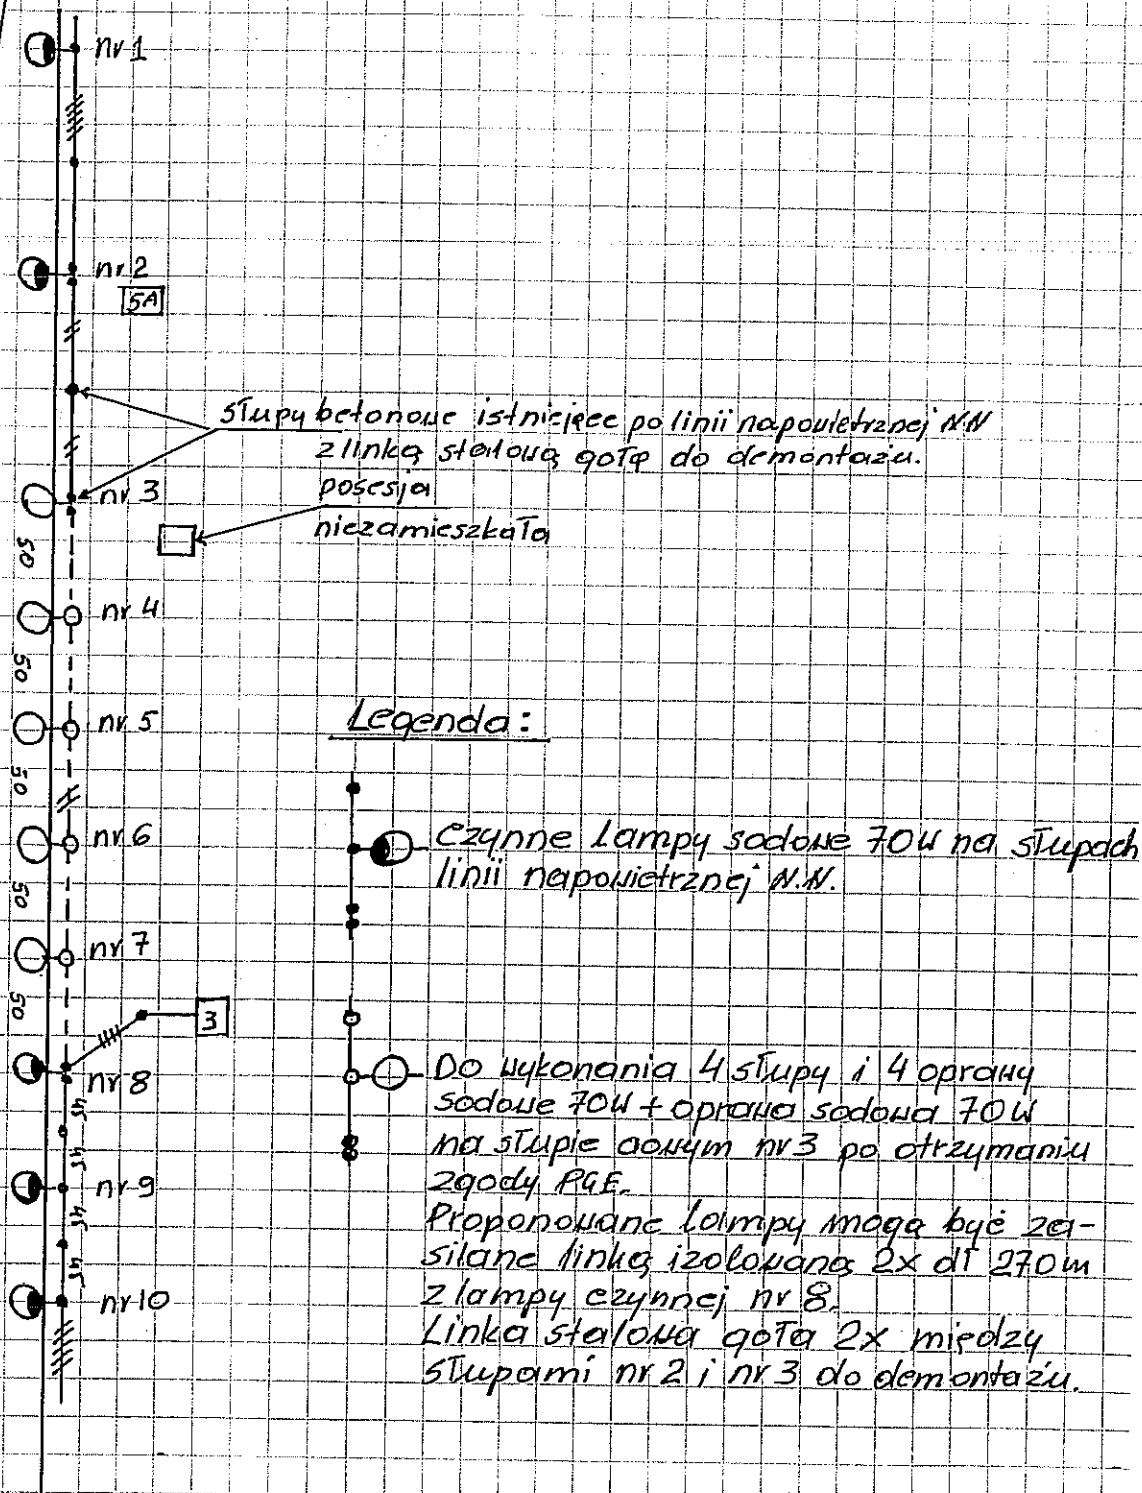 nr 1
nr 2
5A
słupy betonowe istniejące po linii napowietrznej NN
z linką stalową gołą do demontażu.
nr 3
posesja
niezamieszkała
50
nr 4
50
nr 5
Legenda:
50
nr 6
czynne lampy sodowe 70W na słupach
linii napowietrznej N.N.
50
nr 7
50
3
nr 8
Do wykonania 4 słupy i 4 oprawy
sodowe 70W + oprawa sodowa 70W
45
na słupie nr 3 po otrzymaniu
45
nr 9
zgody PGE.
Proponowane lampy mogą być za-
45
silane linką izolowaną 2x dł 270m
45
nr 10
z lampy czynnej nr 8.
Linka stalowa goła 2x między
słupami nr 2 i nr 3 do demontażu.